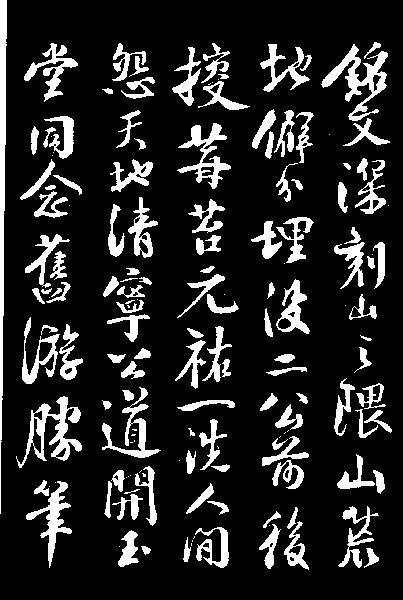 銘文深刻山之隈山荒
地僻分埋没二公前後
莓苔元祐一洗人間
怨天地清寧公道開玉
堂同念舊游勝筆